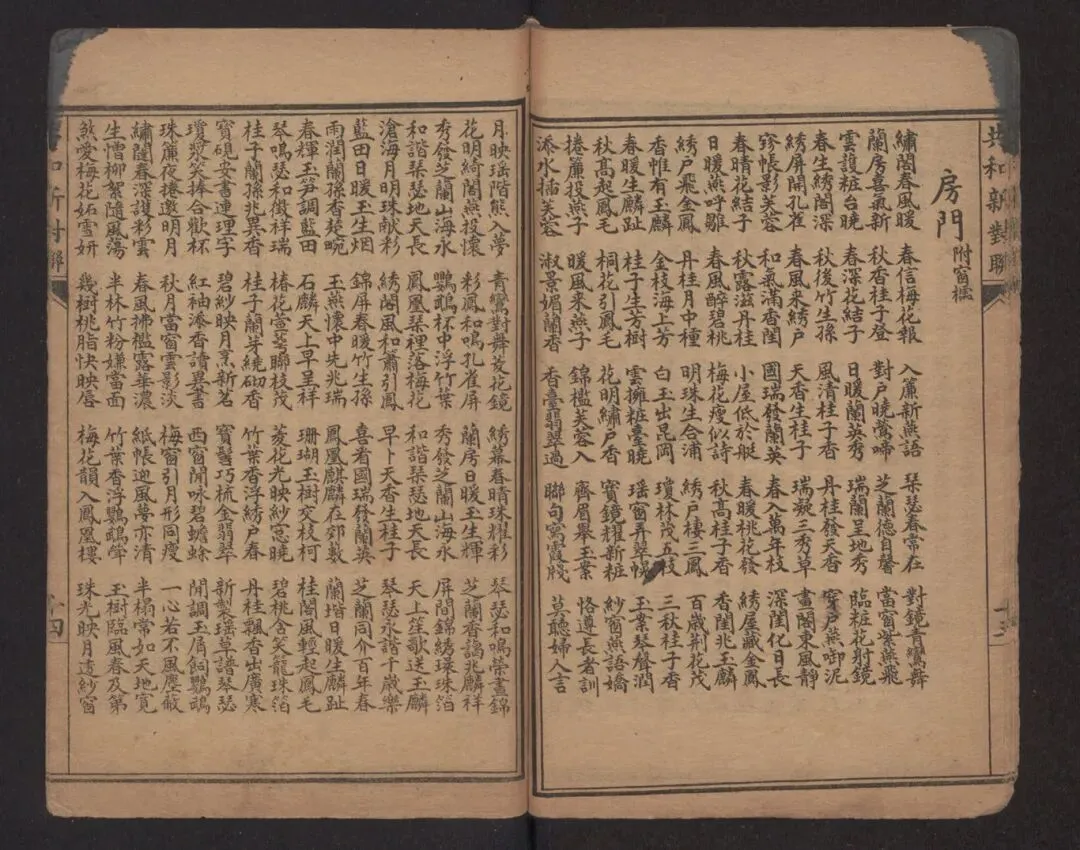 共和新對聯 十三
房門 附窗檻
繡閣春風暖 春信梅花報 入簾新燕語 琹瑟春常在 對鏡青鸞舞
蘭房喜氣新 秋香桂子登 對戶曉鶯啼 芝蘭德自馨 當窗紫燕飛
雲護粧台曉 春深花結子 日暖蘭英秀 瑞蘭呈地秀 臨粧花射鏡
春生綉閣深 秋後竹生孫 風清桂子香 丹桂發天香 穿戶燕啣泥
綉屏開孔雀 春風来綉戶 天香生桂子 瑞凝三秀草 畫閣東風靜
帳影芙蓉 和氣滿香閨 國瑞發蘭英 春入萬年枝 深閨化日長
春晴花結子 秋露滋丹桂 小屋低於艇 春暖桃花發 綉屋藏金鳳
日暖燕呼雛 春風醉碧桃 梅花瘦似詩 秋高桂子香 香閨兆玉麟
綉戶飛金鳳 丹桂月中種 明珠生合浦 綉戶棲三鳳 百歲荆花茂
香帷有玉麟 金枝海上芳 白玉出昆岡 瓊林茂五枝 三秋桂子香
春暖生麟趾 桂子生芳樹 雲擁粧臺曉 瑶窗弄翠幌 玉案琴聲潤
秋高起鳳毛 桐花引鳳毛 花明繡戶香 寳鏡耀新粧 紗窗燕語嬌
捲簾投燕子 暖風来燕子 錦檻芙蓉入 齊眉舉玉案 恪遵長者訓
添水插芙蓉 淑景媚蘭香 香臺翡翠過 聯句寫霞牋 莫聽婦人言
月映瑶階熊入夢 青鸞對舞菱花鏡 綉幕春晴珠耀彩 琴瑟和鳴榮晝錦
花明綺閣燕投懷 彩鳳和鳴孔雀屏 蘭房日暖玉生輝 芝蘭香謁兆麟祥
秀發芝蘭山海永 鸚鵡杯中浮竹葉 秀發芝蘭山海永 屏間錦綉璨珠箔
和諧琹瑟地天長 鳳凰琹裡落梅花 和諧琹瑟地天長 天上笙歌送玉麟
滄海月明珠献彩 綉閣風和蕭引鳳 早卜天香生桂子 琴瑟永諧千歲樂
藍田日暖玉生烟 錦屏春暖竹生孫 喜看國瑞發蘭英 芝蘭同介百年春
雨潤蘭孫香楚畹 玉燕懷中先兆瑞 鳳凰麒麟在郊藪 蘭堦日暖生麟趾
春輝玉笋調藍田 石麟天上早呈祥 珊瑚玉樹交枝柯 桂閣風輕起鳳毛
琴鳴瑟和徵祥瑞 椿花萱蕚聯枝茂 菱花光映紗窓曉 碧桃含笑龍珠箔
桂子蘭孫兆異香 桂子蘭芽繞砌香 竹葉香浮綉戶春 丹桂飄香出廣寒
寳硯安書連理字 碧紗映月烹新茗 寳髻巧梳金翡翠 新製瑶草譜琴瑟
瓊漿笑捧合歡杯 紅袖添香讀異書 西窗閒咏碧蟾蜍 閒調玉屑飼鸚鵡
珠簾夜捲邀明月 秋月當窗雲影淡 梅窗引月形同瘦 一心若不風塵敝
繡闥春深護彩雲 春風拂檻露華濃 紙帳迎風夢亦清 半榻常如天地寬
生憎柳絮隨風蕩 半林竹粉嫌當面 竹葉香浮鸚鵡斝 玉樹臨風春及第
煞愛梅花妬雪妍 幾樹桃脂快映唇 梅花韻入鳳凰樓 珠光映月透紗窗
和新對聯 十四